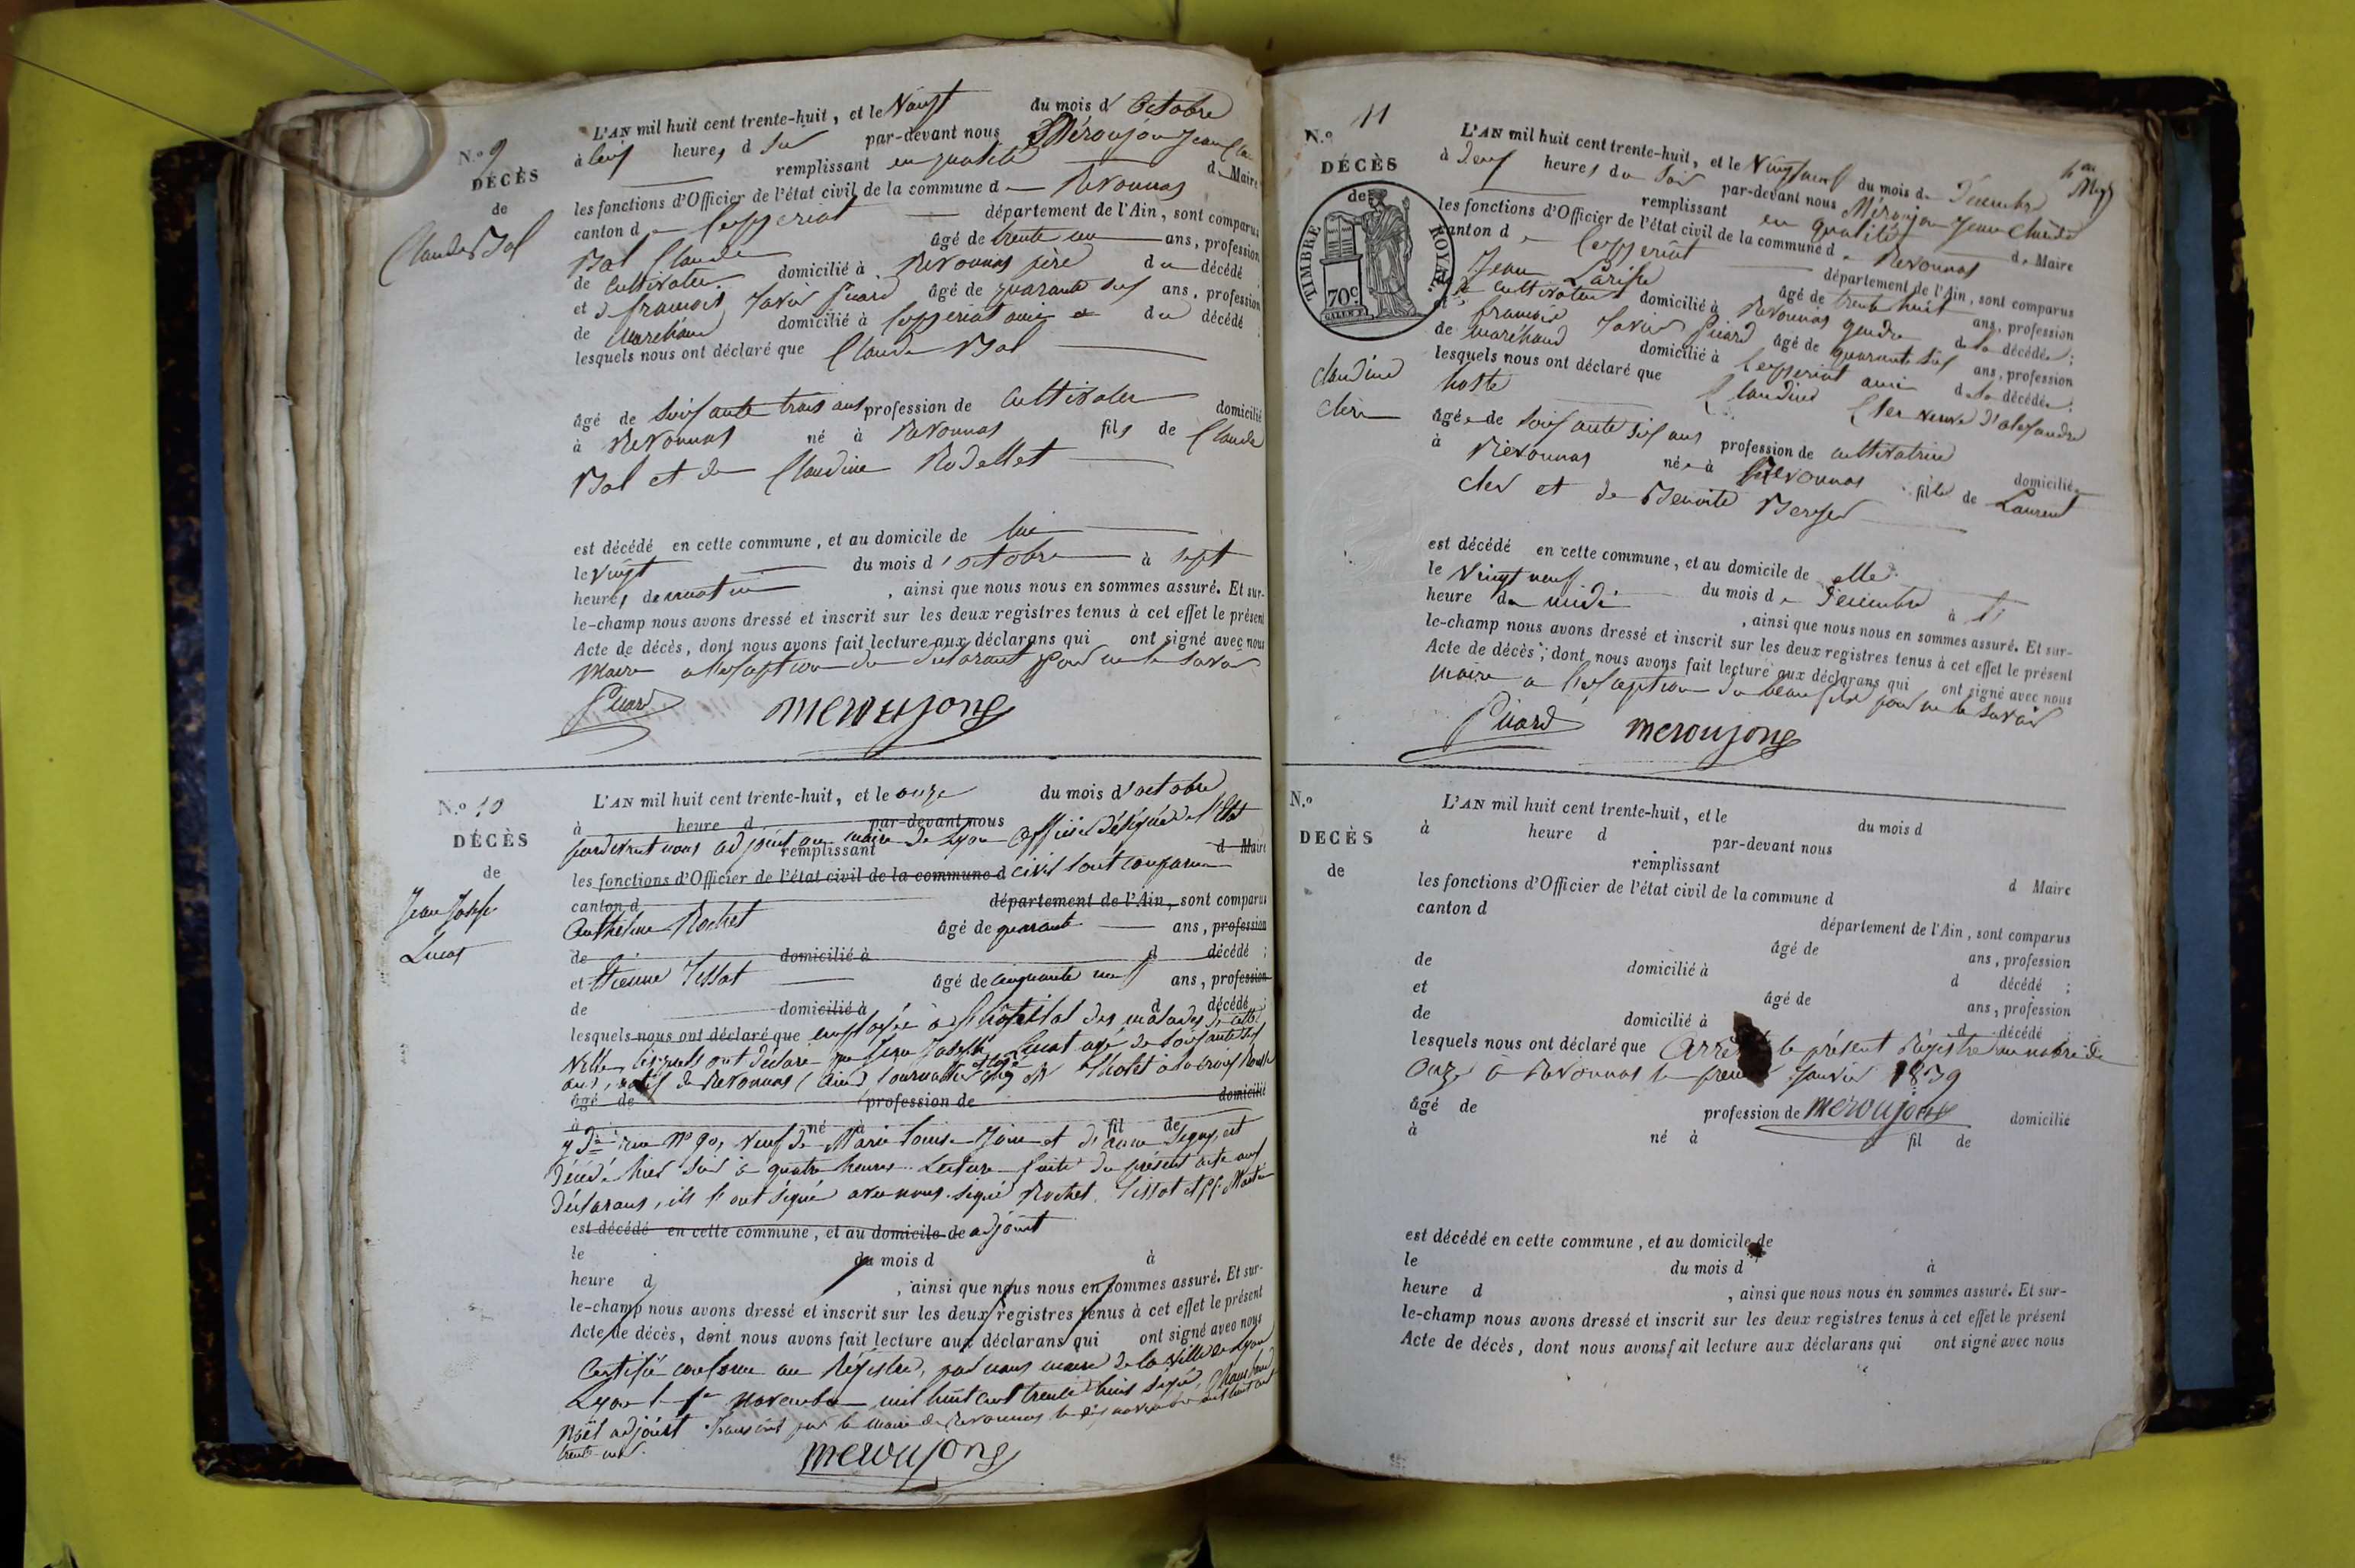 N.o 9
DÉCÈS
de
Claude Bal
L'AN mil huit cent trente-huit, et le Vingt du mois d'Octobre
à heures d par-devant nous Méroujon Jean
remplissant en qualité de Maire
les fonctions d'Officier de l'état civil de la commune de Revonnas
canton de Ceyzeriat département de l'Ain, sont comparus
Bal Claude âgé de trente ans, profession
de Cultivateur domicilié à Revonnas père du décédé ;
et de françois Xavier Picard âgé de quarante six ans, profession
de Maréchaud domicilié à Ceyzeriat ami du décédé ;
lesquels nous ont déclaré que Claude Bal
âgé de soixante trois ans profession de Cultivateur domicilié
à Revonnas né à Revonnas fils de Claude
Bal et de Claudine Rodellet
est décédé en cette commune, et au domicile de lui
le vingt du mois d'octobre à sept
heures de matin, ainsi que nous nous en sommes assuré. Et sur-
le-champ nous avons dressé et inscrit sur les deux registres tenus à cet effet le présent
Acte de décès, dont nous avons fait lecture aux déclarans qui ont signé avec nous
Maire a l'exception du declarant pour ne le savoir
Picard meroujong
N.o 10
DÉCÈS
de
Jean Joseph
Lucas
L'AN mil huit cent trente-huit, et le onze du mois d'octobre
à heure d par-devant nous
pardevant nous adjoint au maire de Lyon Officier délégué de l'Etat
remplissant d Maire
les fonctions d'Officier de l'état civil de la commune d civil sont comparu
canton d département de l'Ain, sont comparus
Anthelme Rochet âgé de quarante ans, profession
de domicilié à d décédé ;
et Etienne Tissot âgé de cinquante neuf ans, profession
de domicilié à d décédé ;
lesquels nous ont déclaré que employés à l'hôpital des malades de cette
Ville lesquels ont déclaré que Jean Joseph Lucat agé de soixante six
ans, natif de Revonnas (Ain) journalier à la croix Rousse
âgé de profession de domicilié
à né à fil de
rue n° 90, veuf de Marie Louise et d'anne est
décédé hier soir à quatre heures. Lecture faite du présent acte aux
déclarans, ils l'ont signé avec nous. signé Rochet. Tissot et Martin
est décédé en cette commune, et au domicile de adjoint
le du mois d à
heure d, ainsi que nous nous en sommes assuré. Et sur-
le-champ nous avons dressé et inscrit sur les deux registres tenus à cet effet le présent
Acte de décès, dont nous avons fait lecture aux déclarans qui ont signé avec nous
Certifié conforme au Régistre, par nous maire de la ville de Lyon
Lyon le 1er novembre mil huit cent trente huit signé
Noël adjoint Transcrit par le Maire de Revonnas le dix novembre mil huit cent
trente-huit.
meroujong
N.o 11
DÉCÈS
de
TIMBRE ROYAL
70c
Claudine
Cler
L'AN mil huit cent trente-huit, et le Vingt neuf du mois de Décembre
à deux heures du Soir par-devant nous Méroujon Jean Claude
remplissant en qualité de Maire
les fonctions d'Officier de l'état civil de la commune de Revonnas
canton de Ceyzeriat département de l'Ain, sont comparus
Jean Lariste âgé de trente huit ans, profession
de cultivateur domicilié à Revonnas gendre de la décédée ;
et françois Xavier Picard âgé de quarante six ans, profession
de maréchaud domicilié à Ceyzeriat ami de la décédée ;
lesquels nous ont déclaré que Claudine Cler veuve d'alexandre
hoste
âgée de soixante six ans profession de cultivatrice domiciliée
à Revonnas née à Revonnas fille de Laurent
Cler et de Benoite Berger
est décédé en cette commune, et au domicile de elle
le Vingt neuf du mois de Décembre à
heure de midi, ainsi que nous nous en sommes assuré. Et sur-
le-champ nous avons dressé et inscrit sur les deux registres tenus à cet effet le présent
Acte de décès, dont nous avons fait lecture aux déclarans qui ont signé avec nous
Maire a l'exception du beau fils pour ne le savoir
Picard meroujong
N.o
DECÈS
de
L'AN mil huit cent trente-huit, et le du mois d
à heure d par-devant nous
remplissant d Maire
les fonctions d'Officier de l'état civil de la commune d
canton d département de l'Ain, sont comparus
âgé de ans, profession
de domicilié à d décédé ;
et âgé de ans, profession
de domicilié à d décédé
lesquels nous ont déclaré que Arrêté le présent Régistre au nombre de
Onze à Revonnas le premier Janvier 1839
âgé de profession de meroujong domicilié
à né à fil de
est décédé en cette commune, et au domicile de
le du mois d à
heure d, ainsi que nous nous en sommes assuré. Et sur-
le-champ nous avons dressé et inscrit sur les deux registres tenus à cet effet le présent
Acte de décès, dont nous avons fait lecture aux déclarans qui ont signé avec nous